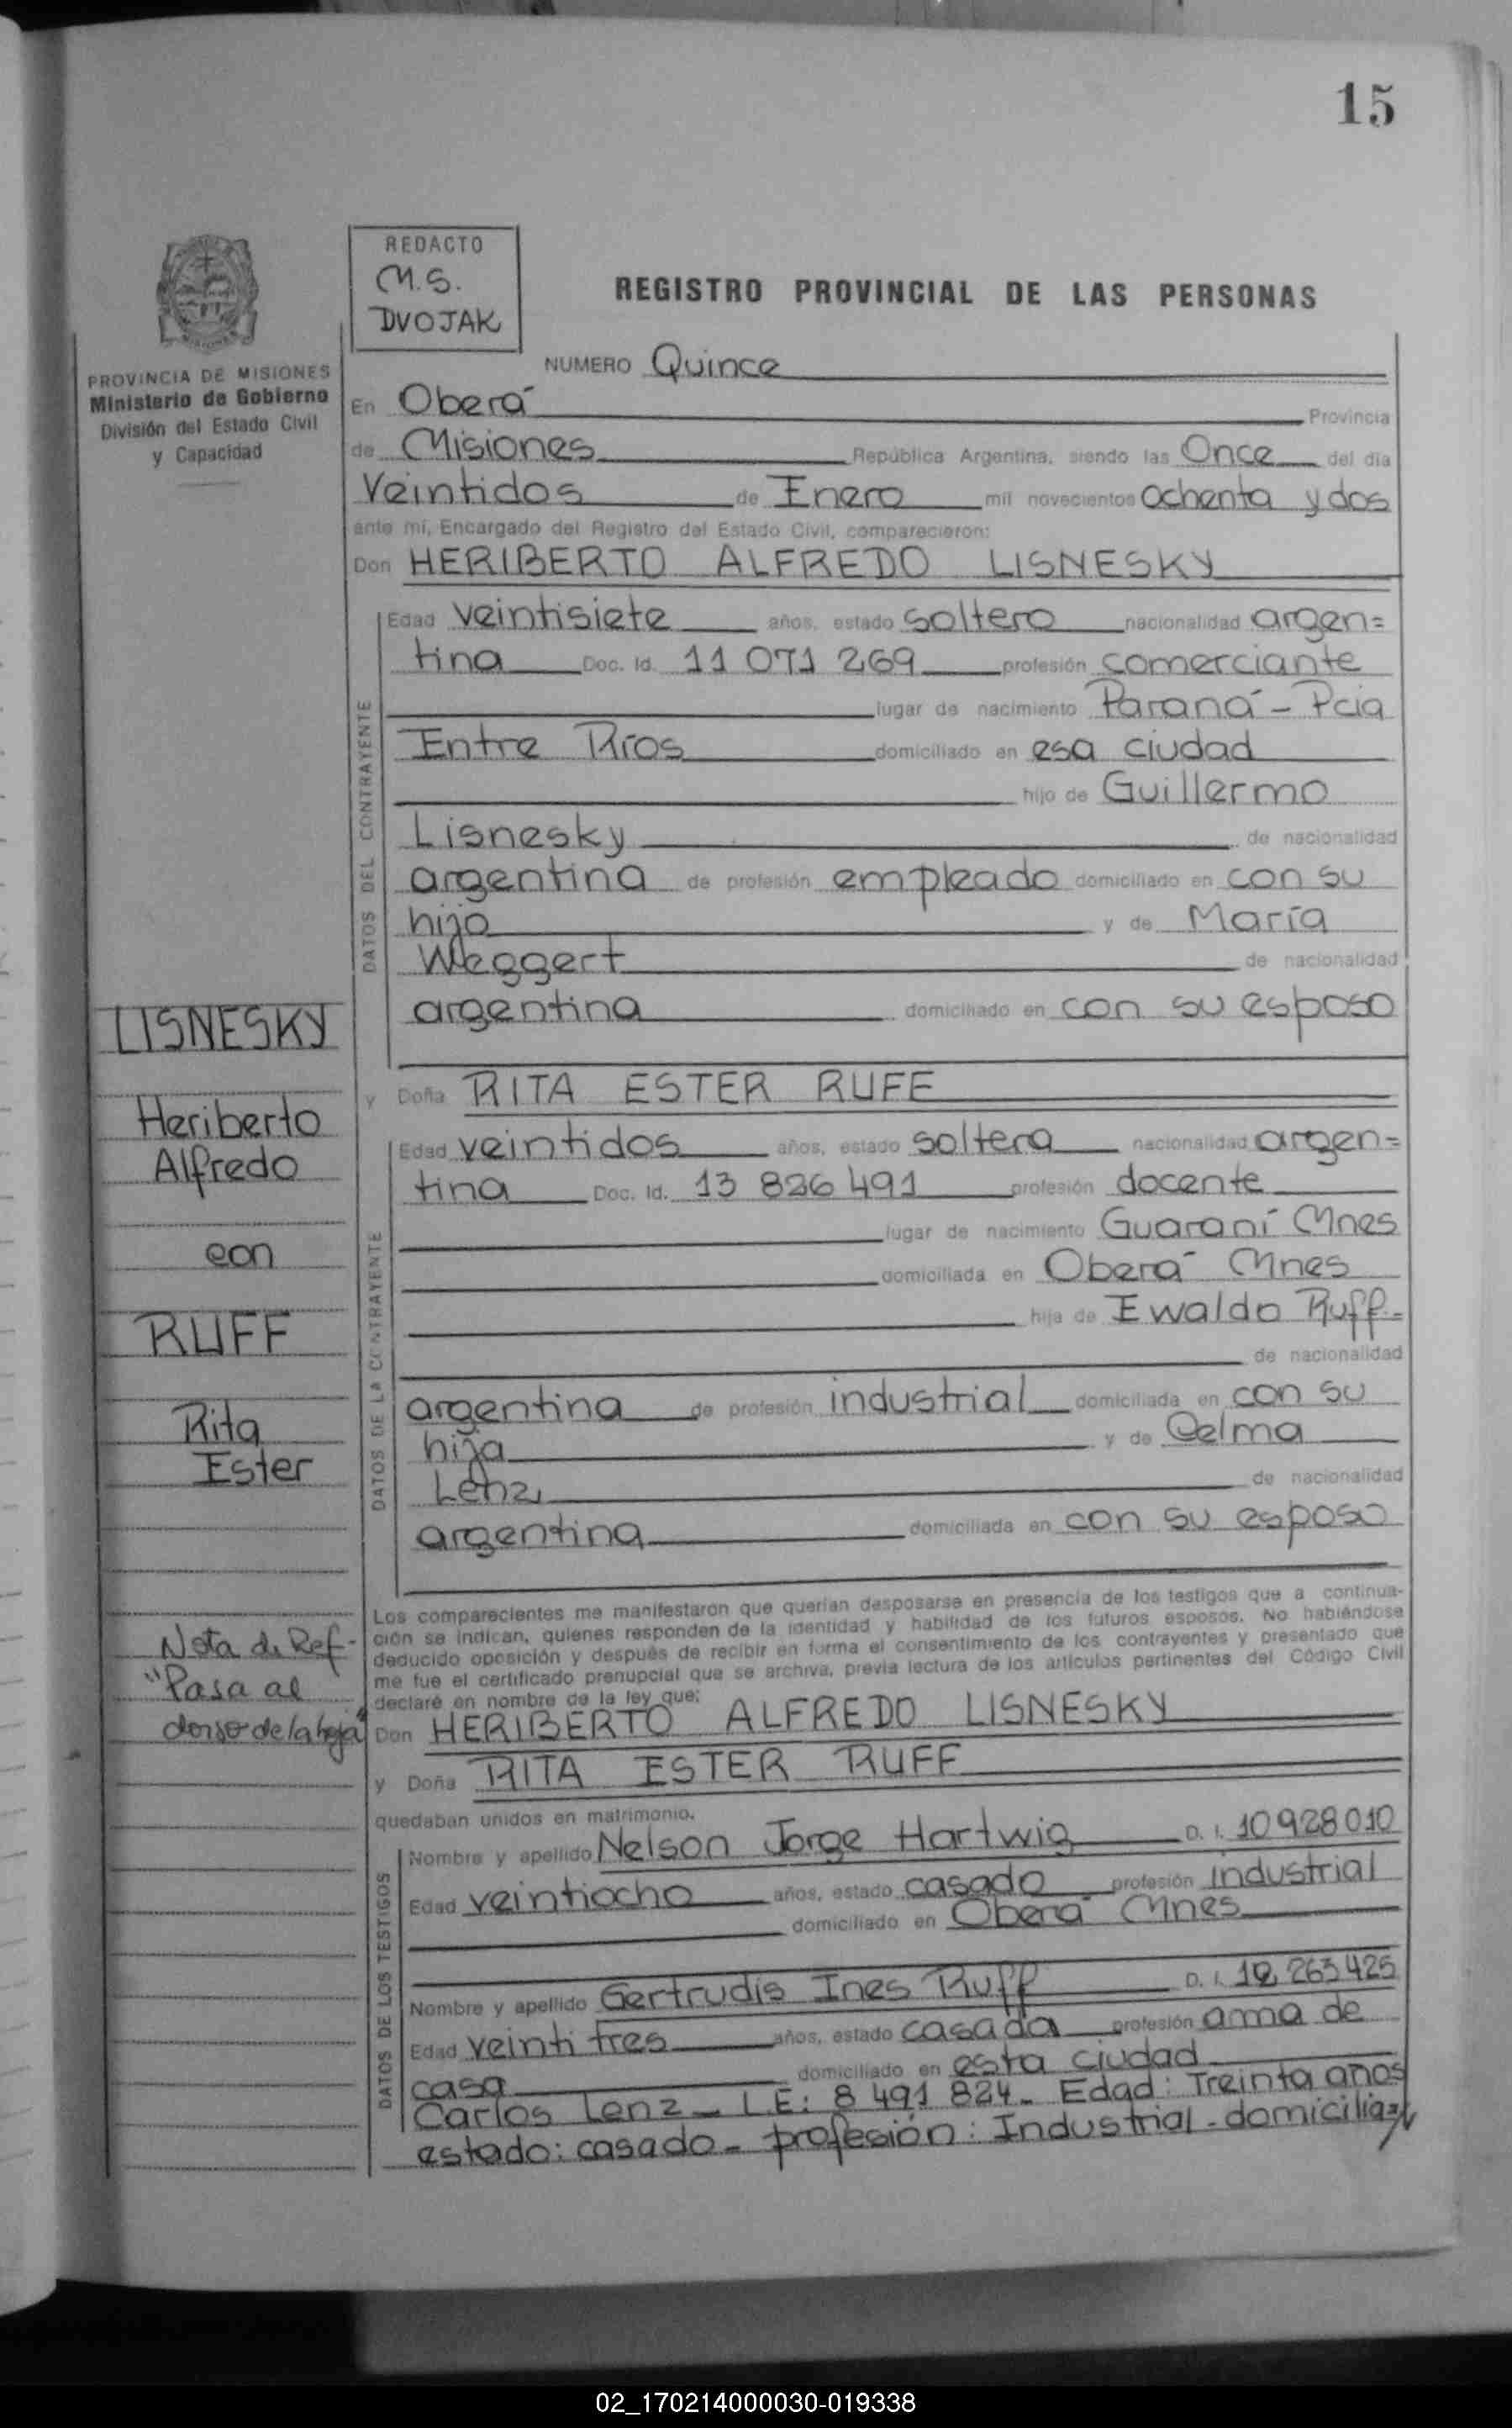 15
REDACTO
M.S.
DVOJAK
REGISTRO PROVINCIAL DE LAS PERSONAS
PROVINCIA DE MISIONES
Ministerio de Gobierno
División del Estado Civil
y Capacidad
NUMERO Quince
En Oberá Provincia
de Misiones República Argentina, siendo las Once del día
Veintidos de Enero mil novecientos ochenta y dos
ante mí, Encargado del Registro del Estado Civil, comparecieron:
Don HERIBERTO ALFREDO LISNESKY
DATOS DEL CONTRAYENTE
Edad veintisiete años, estado soltero nacionalidad argen=
tina Doc. Id. 11 071 269 profesión comerciante
lugar de nacimiento Paraná - Pcia
Entre Ríos domiciliado en esa ciudad
hijo de Guillermo
Lisnesky de nacionalidad
argentina de profesión empleado domiciliado en con su
hijo y de María
Weggert de nacionalidad
argentina domiciliado en con su esposo
y Doña RITA ESTER RUFF
DATOS DE LA CONTRAYENTE
Edad veintidos años, estado soltera nacionalidad argen=
tina Doc. Id. 13 826 491 profesión docente
lugar de nacimiento Guaraní Mnes
domiciliada en Oberá Mnes
hija de Ewaldo Ruff-
de nacionalidad
argentina de profesión industrial domiciliada en con su
hija y de Delma
Lenz de nacionalidad
argentina domiciliada en con su esposo
Los comparecientes me manifestaron que querían desposarse en presencia de los testigos que a continua-
ción se indican, quienes responden de la identidad y habilidad de los futuros esposos. No habiéndose
deducido oposición y después de recibir en forma el consentimiento de los contrayentes y presentado que
me fue el certificado prenupcial que se archiva, previa lectura de los artículos pertinentes del Código Civil
declaré en nombre de la ley que:
Don HERIBERTO ALFREDO LISNESKY
y Doña RITA ESTER RUFF
quedaban unidos en matrimonio.
DATOS DE LOS TESTIGOS
Nombre y apellido Nelson Jorge Hartwig D. I. 10928010
Edad veintiocho años, estado casado profesión industrial
domiciliado en Oberá Mnes
Nombre y apellido Gertrudis Ines Ruff D. I. 12 263 425
Edad veinti tres años, estado casada profesión ama de
casa domiciliado en esta ciudad
Carlos Lenz - L.E: 8 491 824- Edad: Treinta años
estado: casado- profesión: Industrial-domicilia=
LISNESKY
Heriberto
Alfredo
con
RUFF
Rita
Ester
Nota de Ref-
"Pasa al
dorso de la hoja"
02_170214000030-019338